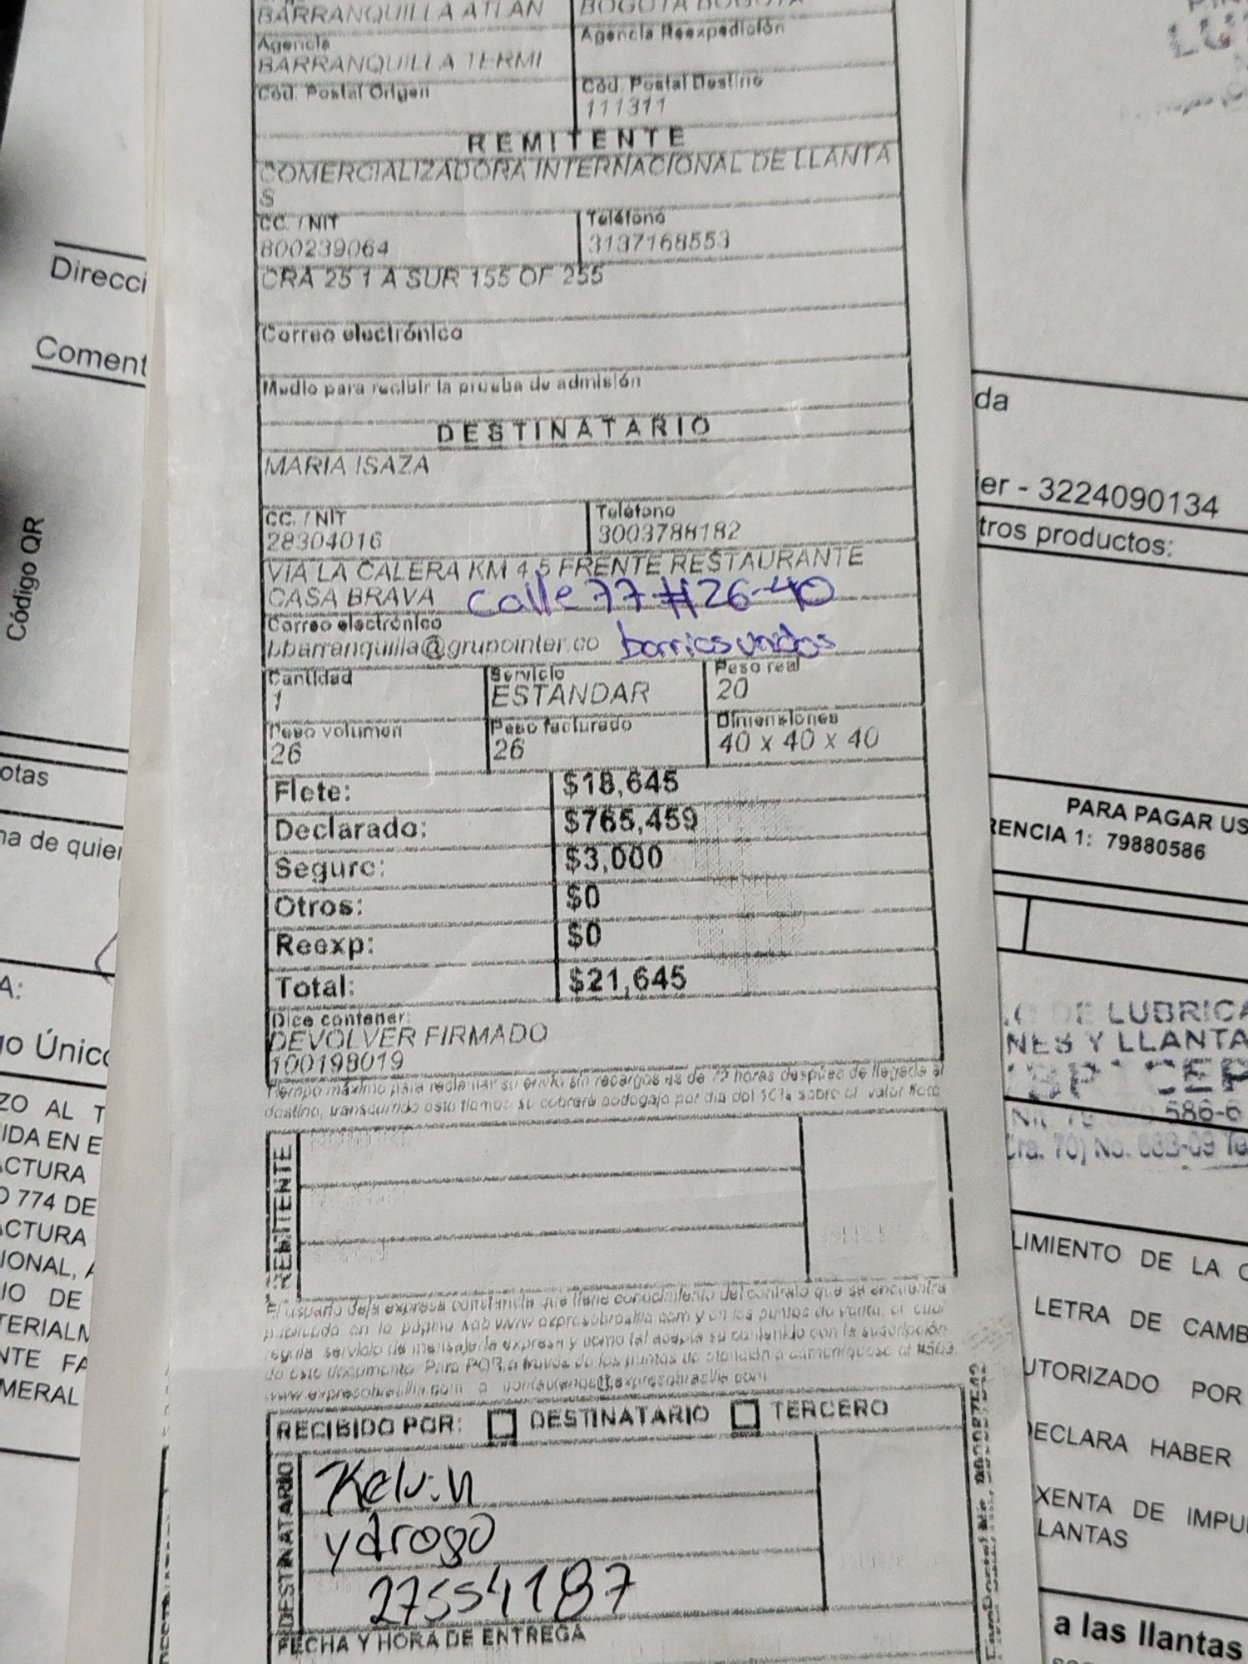 BARRANQUILLA ATLAN
Agencia
BARRANQUILLA TERMI
Agencia Reexpedición
Cód. Postal Origen
Cód. Postal Destino
111311
REMITENTE
COMERCIALIZADORA INTERNACIONAL DE LLANTA
S
CC. / NIT
800239064
Teléfono
3137168553
CRA 25 1 A SUR 155 OF 255
Correo electrónico
Medio para recibir la prueba de admisión
DESTINATARIO
MARIA ISAZA
CC. / NIT
28304016
Teléfono
3003788182
VIA LA CALERA KM 4.5 FRENTE RESTAURANTE
CASA BRAVA calle 77 #26-40
Correo electrónico
bbarranquilla@grupointer.co barrios unidos
Cantidad
1
Servicio
ESTANDAR
Peso real
20
Peso volumen
26
Peso facturado
26
Dimensiones
40 x 40 x 40
Flete: $18,645
Declarado: $765,459
Seguro: $3,000
Otros: $0
Reexp: $0
Total: $21,645
Dice contener:
DEVOLVER FIRMADO
100198019
Tiempo máximo para reclamar su envío sin recargos es de 72 horas después de llegada al
destino, transcurrido este tiempo se cobrará bodegaje por día del 10% sobre el valor flete
REMITENTE
El usuario deja expresa constancia que tiene conocimiento del contrato que se encuentra
publicado en la página web www.expresobrasilia.com y en los puntos de venta, el cual
regula servicio de mensajería expresa y como tal acepta su contenido con la suscripción
de este documento. Para PQR a través de los puntos de atención o comuníquese al
RECIBIDO POR: DESTINATARIO TERCERO
DESTINATARIO
Kelvin
ydrogo
27554187
FECHA Y HORA DE ENTREGA
Direcci
Coment
Código QR
otas
na de quier
A:
go Único
ZO AL T
IDA EN E
ACTURA
O 774 DE
ACTURA
IONAL, A
IO DE
TERIALM
NTE FA
MERAL
da
er - 3224090134
tros productos:
PARA PAGAR US
RENCIA 1: 79880586
DE LUBRICA
NES Y LLANTA
586-6
LIMIENTO DE LA C
LETRA DE CAMB
UTORIZADO POR
ECLARA HABER
XENTA DE IMPU
LANTAS
a las llantas